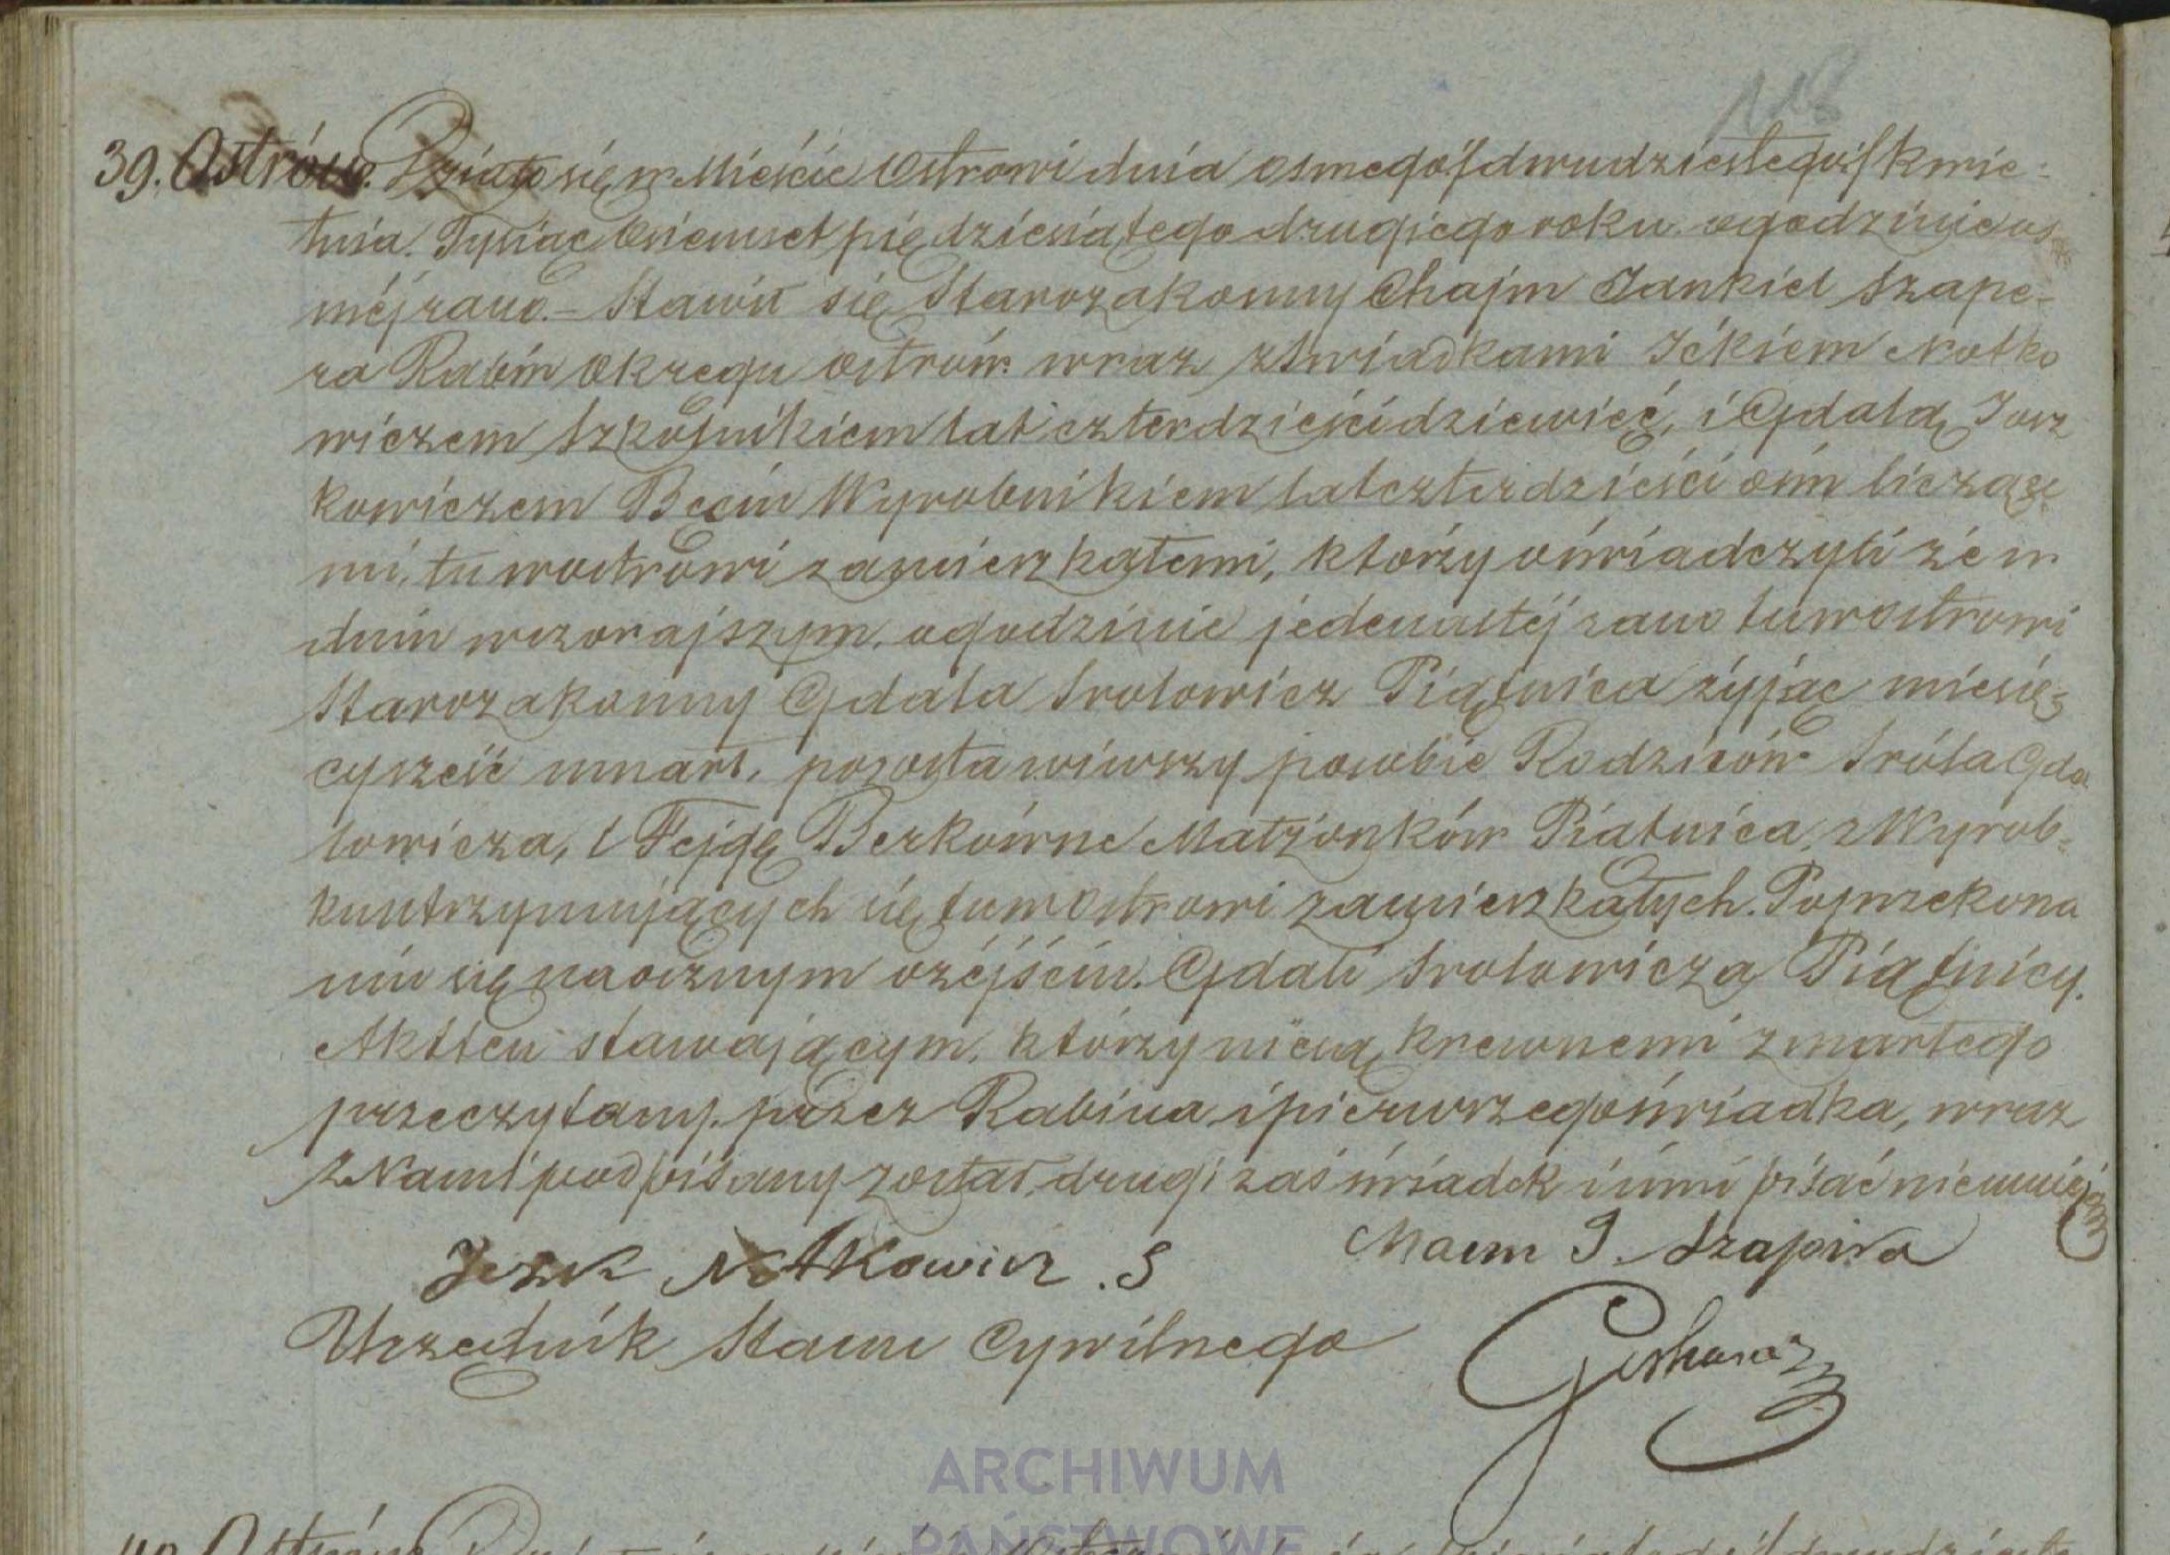 118
39. Ostrów. Działo się w Mieście Ostrowi dnia osmego /:dwudziestego:/ kwie-
tnia. Tysiąc Osiemset pięćdziesiątego drugiego roku o godzinie os
méj rano. – Stawił się Starozakonny Chajm Jankiel Szape-
ra Rabin Okręgu Ostrów. wraz z świadkami Ickiem Notko
wiczem Szkolnikiem lat czterdzieści dziewięć, i Gdalą Josz
kowiczem Wyrobnikiem lat czterdzieści ośm liczące
mi, tu w Ostrowi zamieszkałemi, którzy oświadczyli że w
dniu wczorajszym, o godzinie jedenastéj rano tu w Ostrowi
Starozakonny Gdala Srolowicz Piątnica żyjąc miesię-
cy sześć umarł, pozostawiwszy po sobie Rodziców Srola Gda
lowicza, i Fejgę Berkównę Małżonków Piątnica, z Wyrob-
ku utrzymujących się tu w Ostrowi zamieszkałych. Po przekona
niu się naocznym o zéjściu. Gdali Srolowicza Piątnicy.
Akt ten stawającym, którzy nie są krewnemi zmarłego
przeczytany, przez Rabina i pierwszego świadka, wraz
z Nami podpisany został, drugi zaś świadek iż pisać nieumie
Icek Notkowicz . S Chaim J. Szapira
Urzędnik Stanu Cywilnego
ARCHIWUM
PAŃSTWOWE